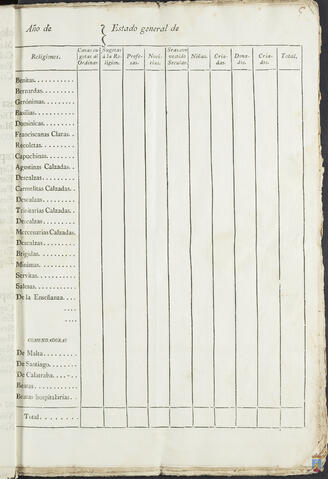 Año de { Estado general de
Religiones. Casas sugetas al Ordinario Sugetas á la Religion. Profesas. Novicias. Sras. con vestido Secular. Niñas. Criadas. Donados. Criados. Total.
Benitas
Bernardas
Gerónimas
Basilias
Dominicas
Franciscanas Claras
Recoletas
Capuchinas
Agustinas Calzadas
Descalzas
Carmelitas Calzadas
Descalzas
Trinitarias Calzadas
Descalzas
Mercenarias Calzadas
Descalzas
Brígidas
Minimas
Servitas
Salesas
De la Enseñanza
COMENDADORAS
De Malta
De Santiago
De Calatraba
Beatas
Beatas hospitalarias
Total